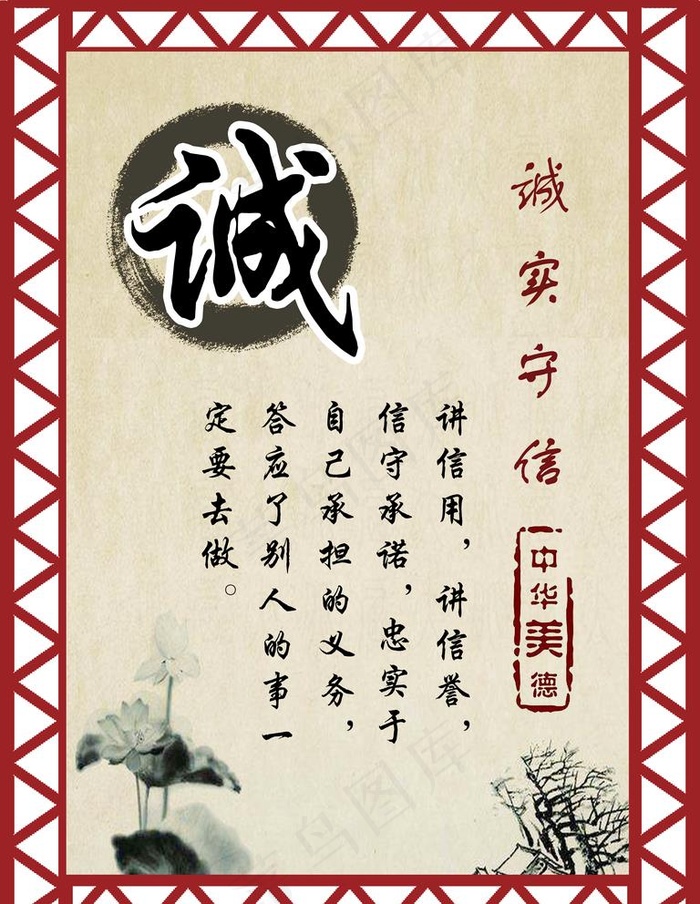 誠
誠实守信
中华美德
讲信用，讲信誉，
信守承诺，忠实于
自己承担的义务，
答应了别人的事一
定要去做。